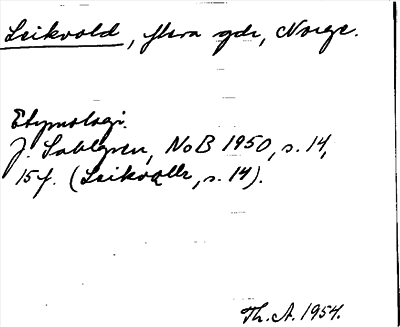 Leikvold, flera gdr, Norge.
Etymologi.
J. Sahlgren, NoB 1950, s. 14,
15f. (Leikvalle, s. 14).
Th. A. 1954.